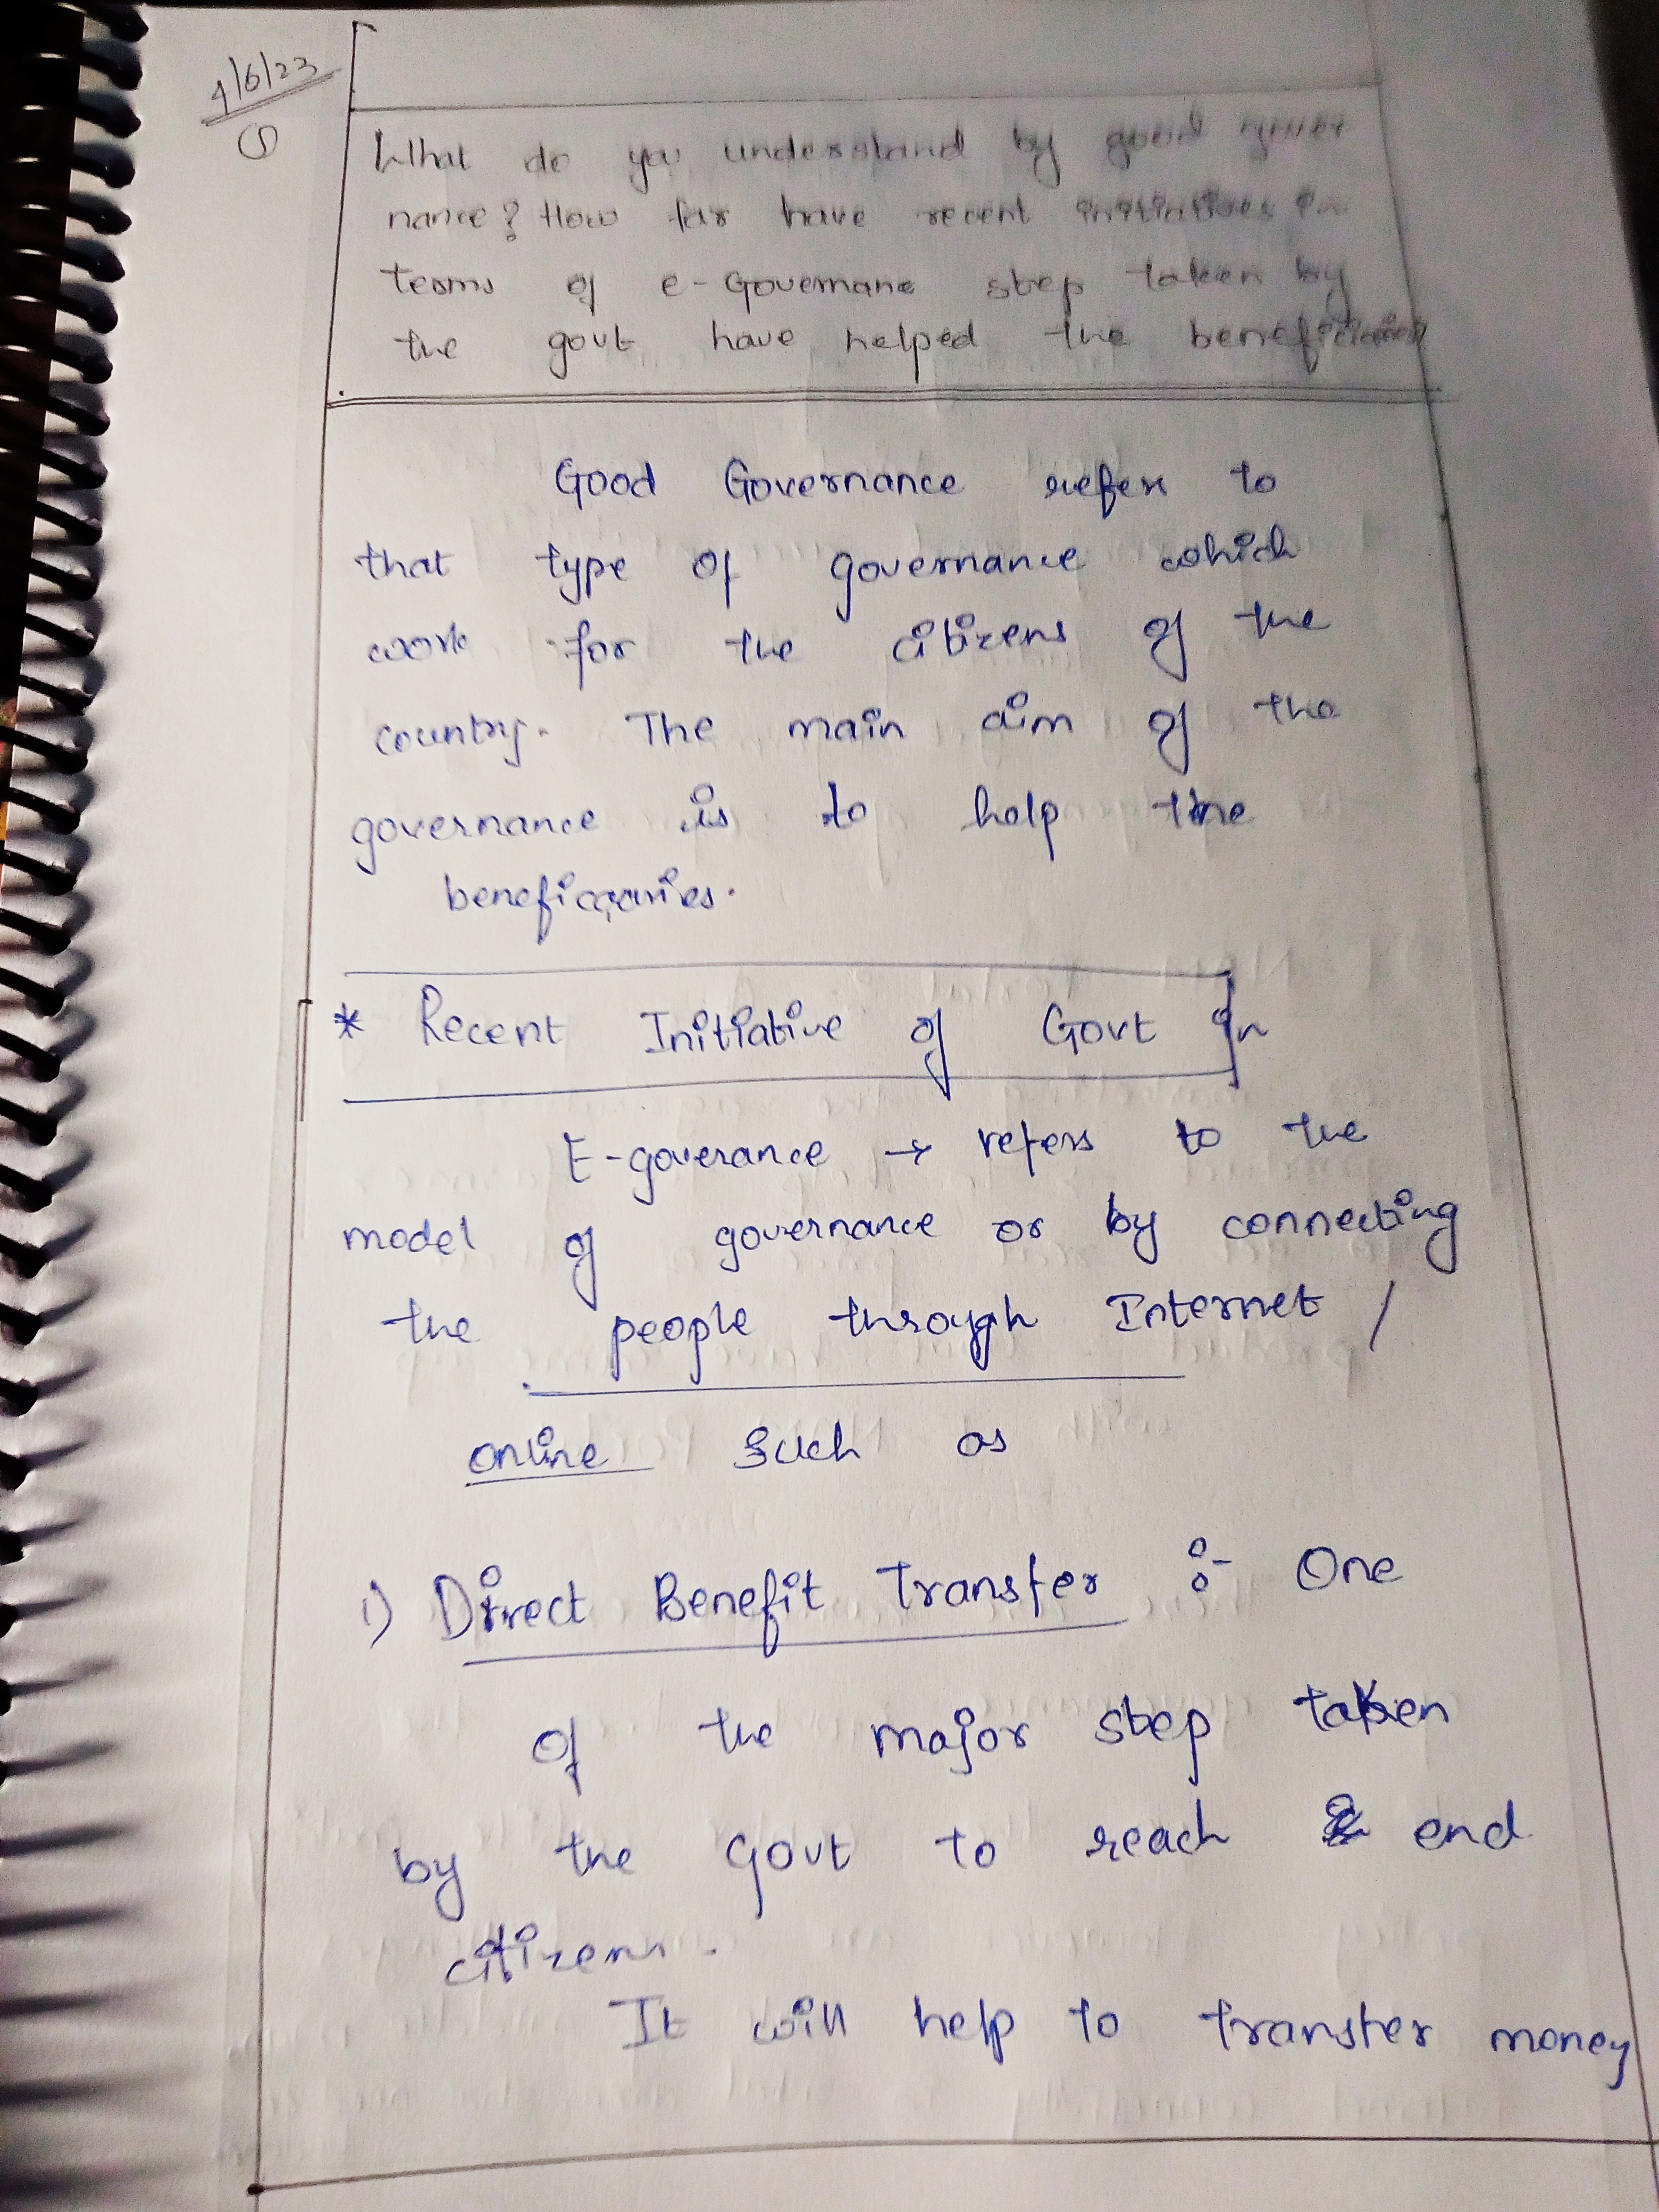 4/6/23
What do you understand by good gover
nance? How far have recent initiatives in
terms of e-Governane step taken by
the govt have helped the beneficiaries
Good Governance refers to
that type of governance which
work for the citizens of the
country. The main aim of the
governance is to help the
beneficiaries.
* Recent Initiative of Govt in
E-goverance → refers to the
model of governance or by connecting
the people through Internet /
online such as
1) Direct Benefit Transfer :- One
of the major step taken
by the Govt to reach end
citizens.
It will help to transfer money